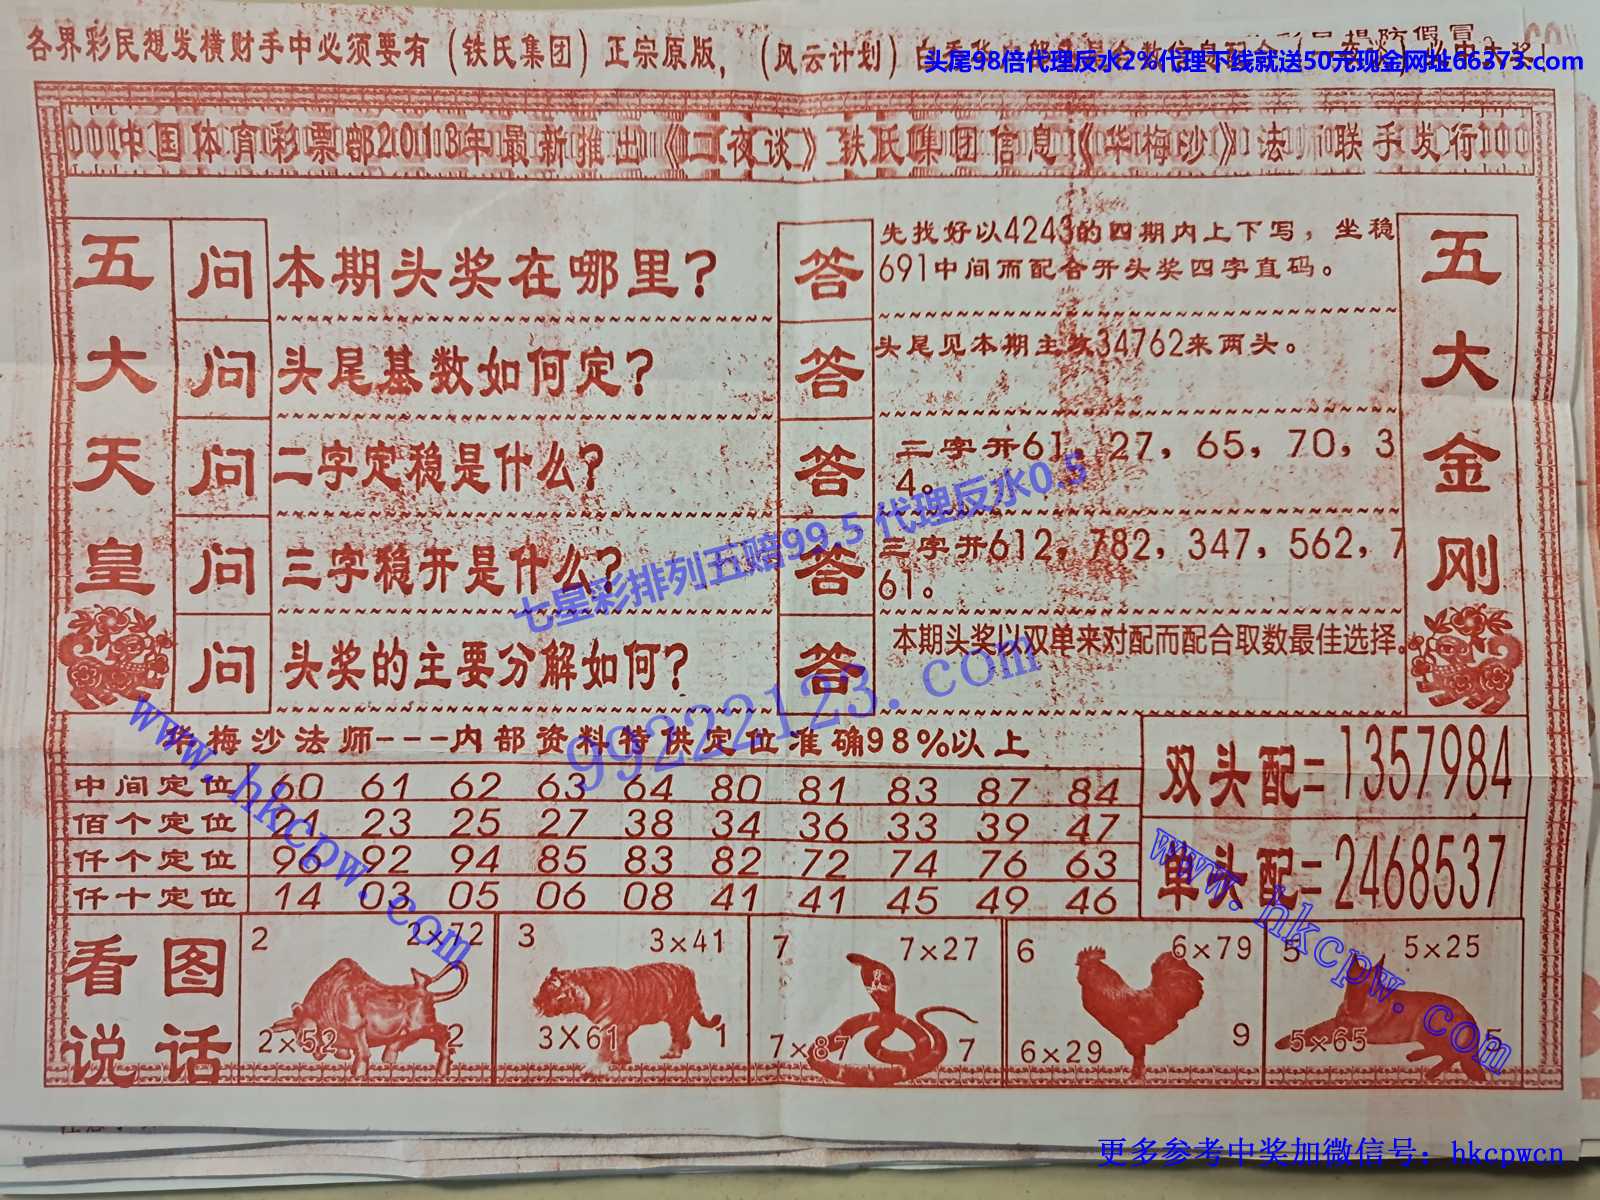 各界彩民想发横财手中必须要有（铁氏集团）正宗原版，（风云计划）
头尾98倍代理反水2%代理下线就送50元现金网址66373.com
中国体育彩票部2018年最新推出《二夜谈》铁氏集团信息《华梅沙》法师联手发行
五大天皇
问 本期头奖在哪里？
答 先找好以4243的四期内上下写，坐稳
691中间而配合开头奖四字直码。
问 头尾基数如何定？
答 头尾见本期主攻34762来两头。
问 二字定稳是什么？
答 二字开61，27，65，70，3
4。
问 三字稳开是什么？
答 三字开612，782，347，562，7
61。
问 头奖的主要分解如何？
答 本期头奖以双单来对配而配合取数最佳选择.
五大金刚
七星彩排列五赔99.5 代理反水0.5
99222123.com
www.hkcpw.com
华梅沙法师---内部资料特供定位准确98%以上
中间定位 60 61 62 63 64 80 81 83 87 84
佰个定位 21 23 25 27 38 34 36 33 39 47
仟个定位 96 92 94 85 83 82 72 74 76 63
仟十定位 14 03 05 06 08 41 41 45 49 46
双头配=1357984
单头配=2468537
www.hkcpw.com
看图说话
2 2×72
2×52 2
3 3×41
3X61 1
7 7×27
7×87 7
6 6×79
6×29 9
5 5×25
5×65 5
更多参考中奖加微信号：hkcpwcn